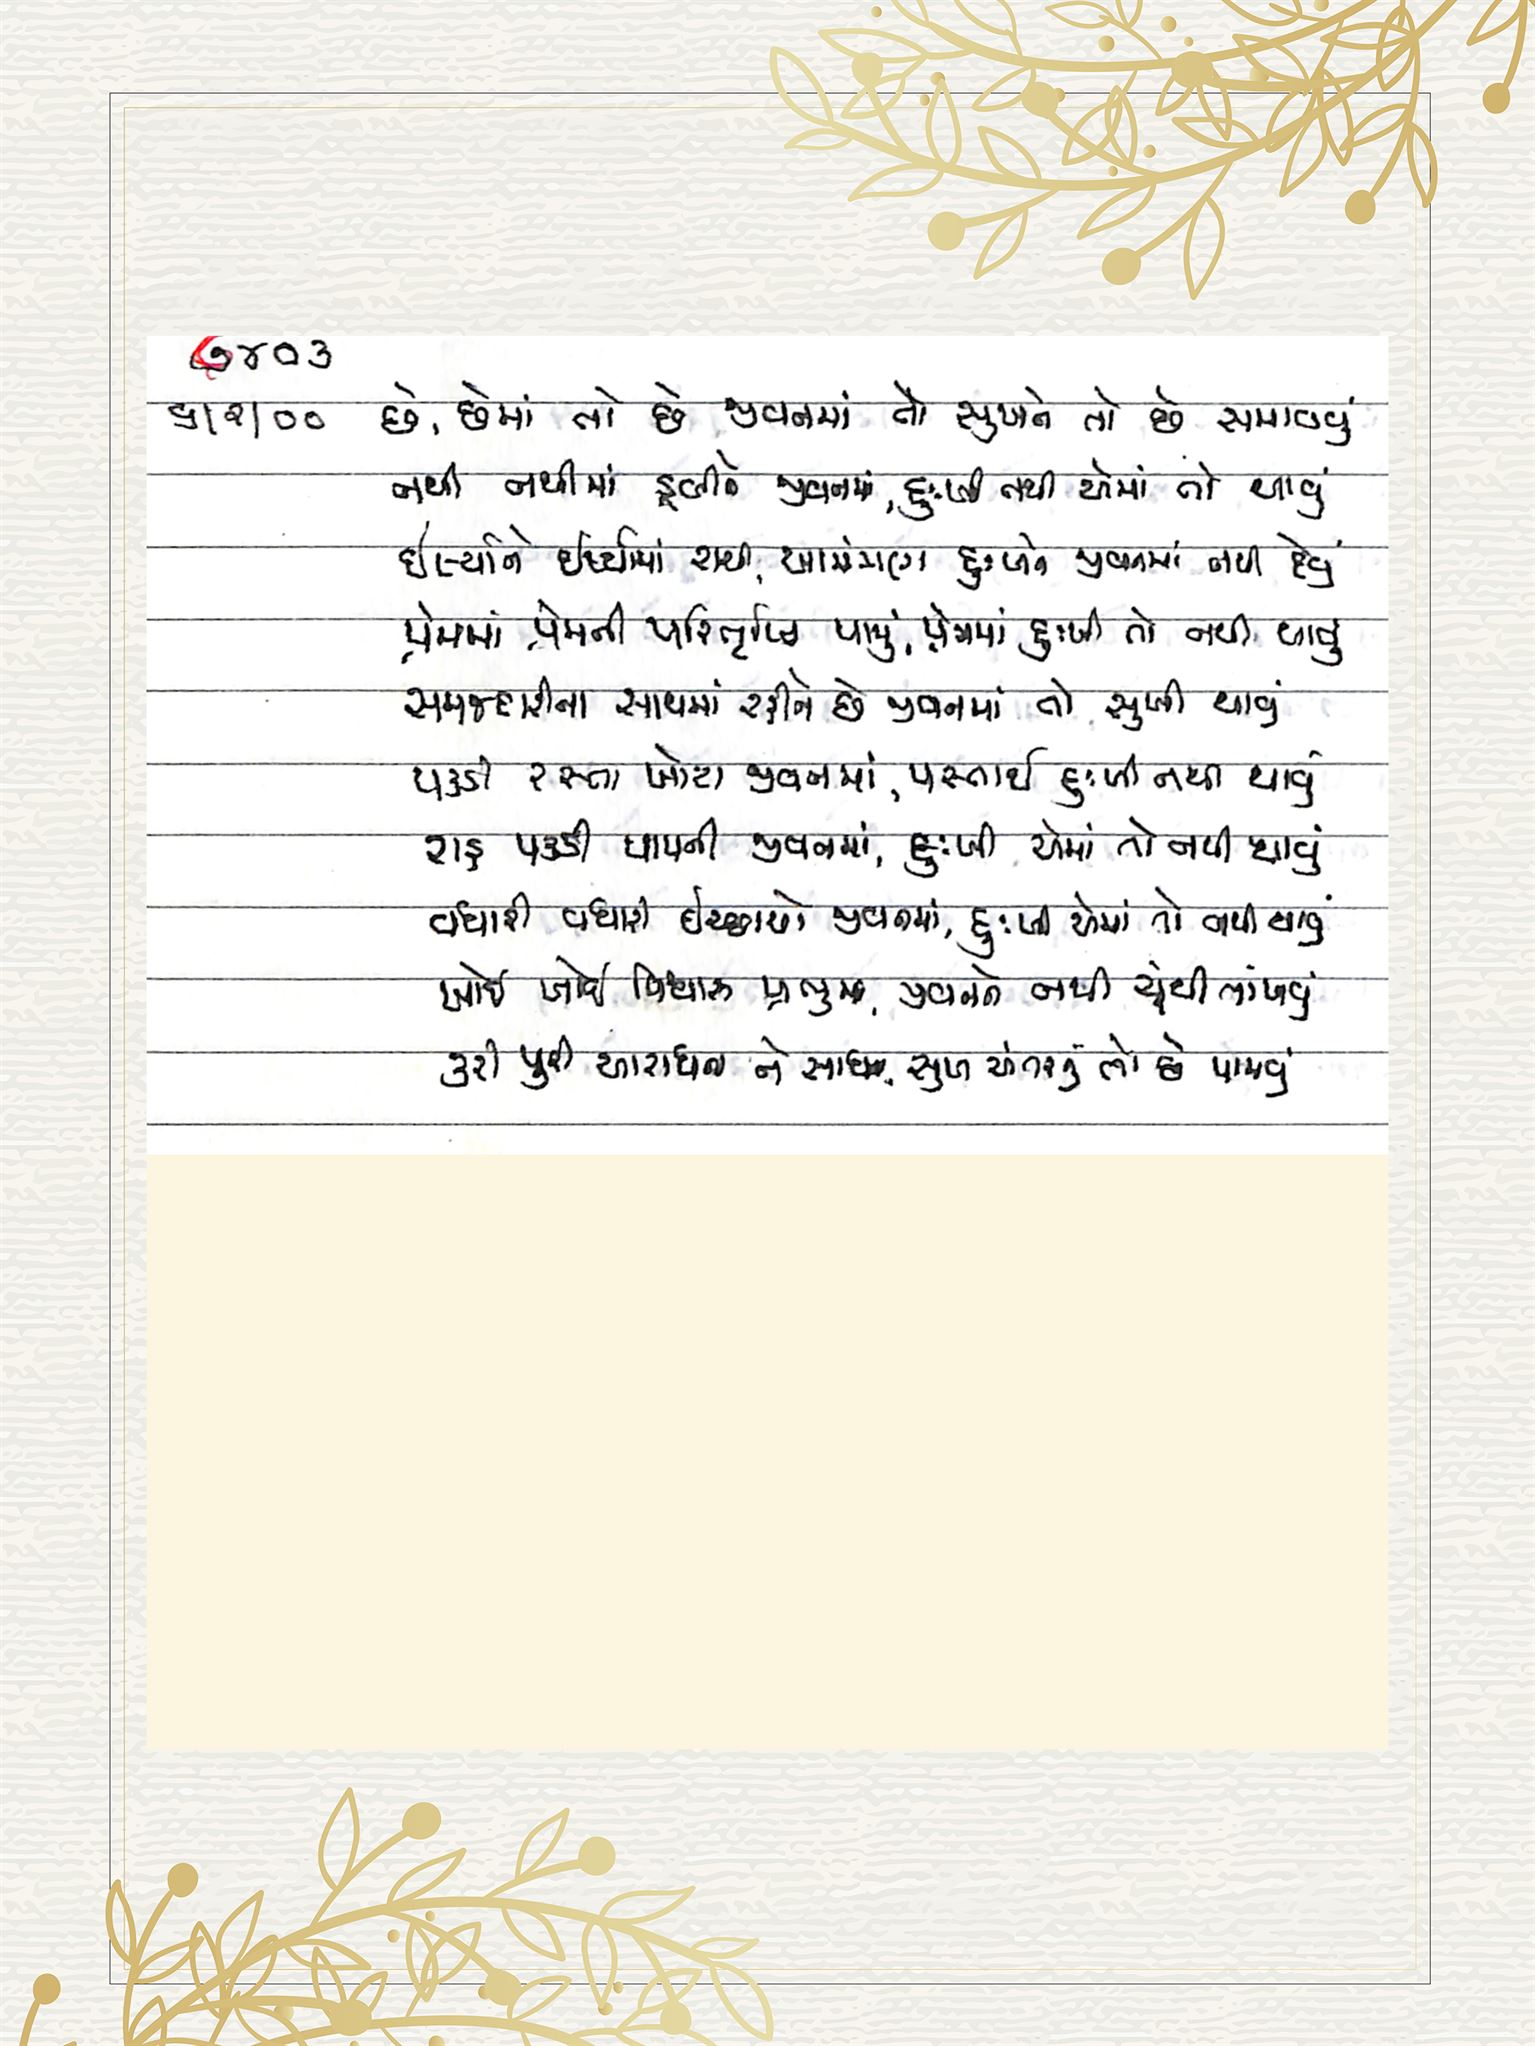 ૭૪૦૩
૫/૨/૦૦ છે, છેમાં તો છે જીવનમાં તો સુખને તો છે સમાવવું
નથી નથીમાં ડૂબીને જીવનમાં, દુઃખી નથી એમાં તો થાવું
ઈર્ષ્યાને ઈર્ષ્યામાં રાચી, આમંત્રણ દુઃખને જીવનમાં નથી દેવું
પ્રેમમાં પ્રેમની પરિતૃપ્તિ પામું, પ્રેમમાં દુઃખી તો નથી થાવું
સમજદારીના સાથમાં રહીને છે જીવનમાં તો સુખી થાવું
પકડી રસ્તા ખોટા જીવનમાં, પસ્તાઈ દુઃખી નથી થાવું
રાહ પકડી પાપની જીવનમાં, દુઃખી એમાં તો નથી થાવું
વધારી વધારી ઈચ્છાઓ જીવનમાં, દુઃખી એમાં તો નથી થાવું
ખોઈ ખોઈ વિશ્વાસ પ્રભુમાં, જીવનને નથી નાંખવું
કરી પુરી આરાધના ને સાધના, સુખ અંતરનું તો છે પામવું